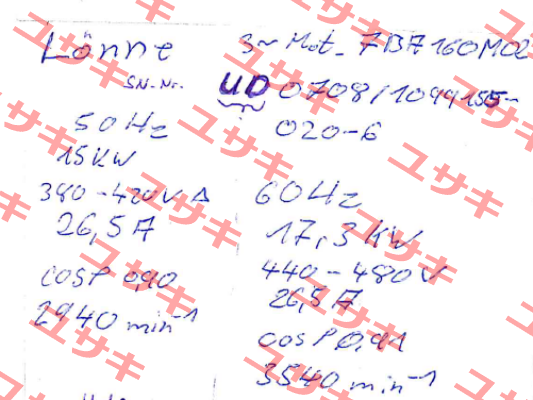 Lönne 3~ Mot. 7BA160M02
SN-Nr. UD 0708/1099155-
020-6
50Hz
15KW
380-420V Δ
26,5A
cosφ 0,90
2940 min⁻¹
60Hz
17,3KW
440-480V
26,5A
cosφ 0,91
3540 min⁻¹
ユサキ
ユサキ
ユサキ
ユサキ
ユサキ
ユサキ
ユサキ
ユサキ
ユサキ
ユサキ
ユサキ
ユサキ